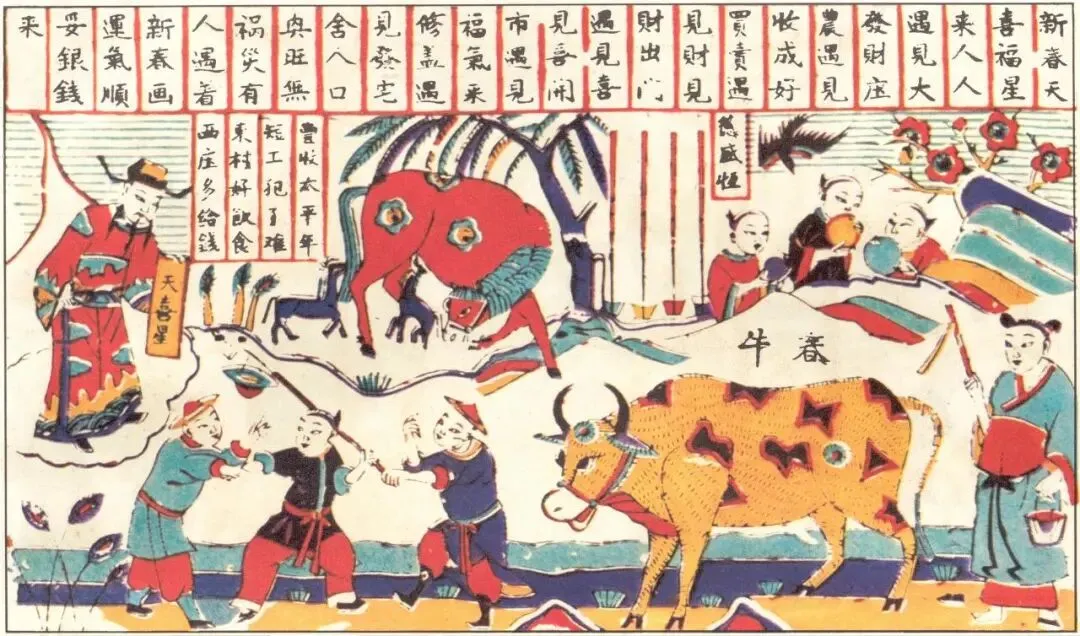 新春天
喜福星
来人人
遇見大
發財庄
農遇見
收成好
買賣遇
見財見
財出門
遇見喜
見喜開
市遇見
福氣来
修盖遇
見發宅
舍人口
興旺無
祸災有
人遇着
新春画
運氣順
妥銀錢
来
豊收太平年
短工犯了难
東村好飲食
西庄多给錢
天喜星
春牛